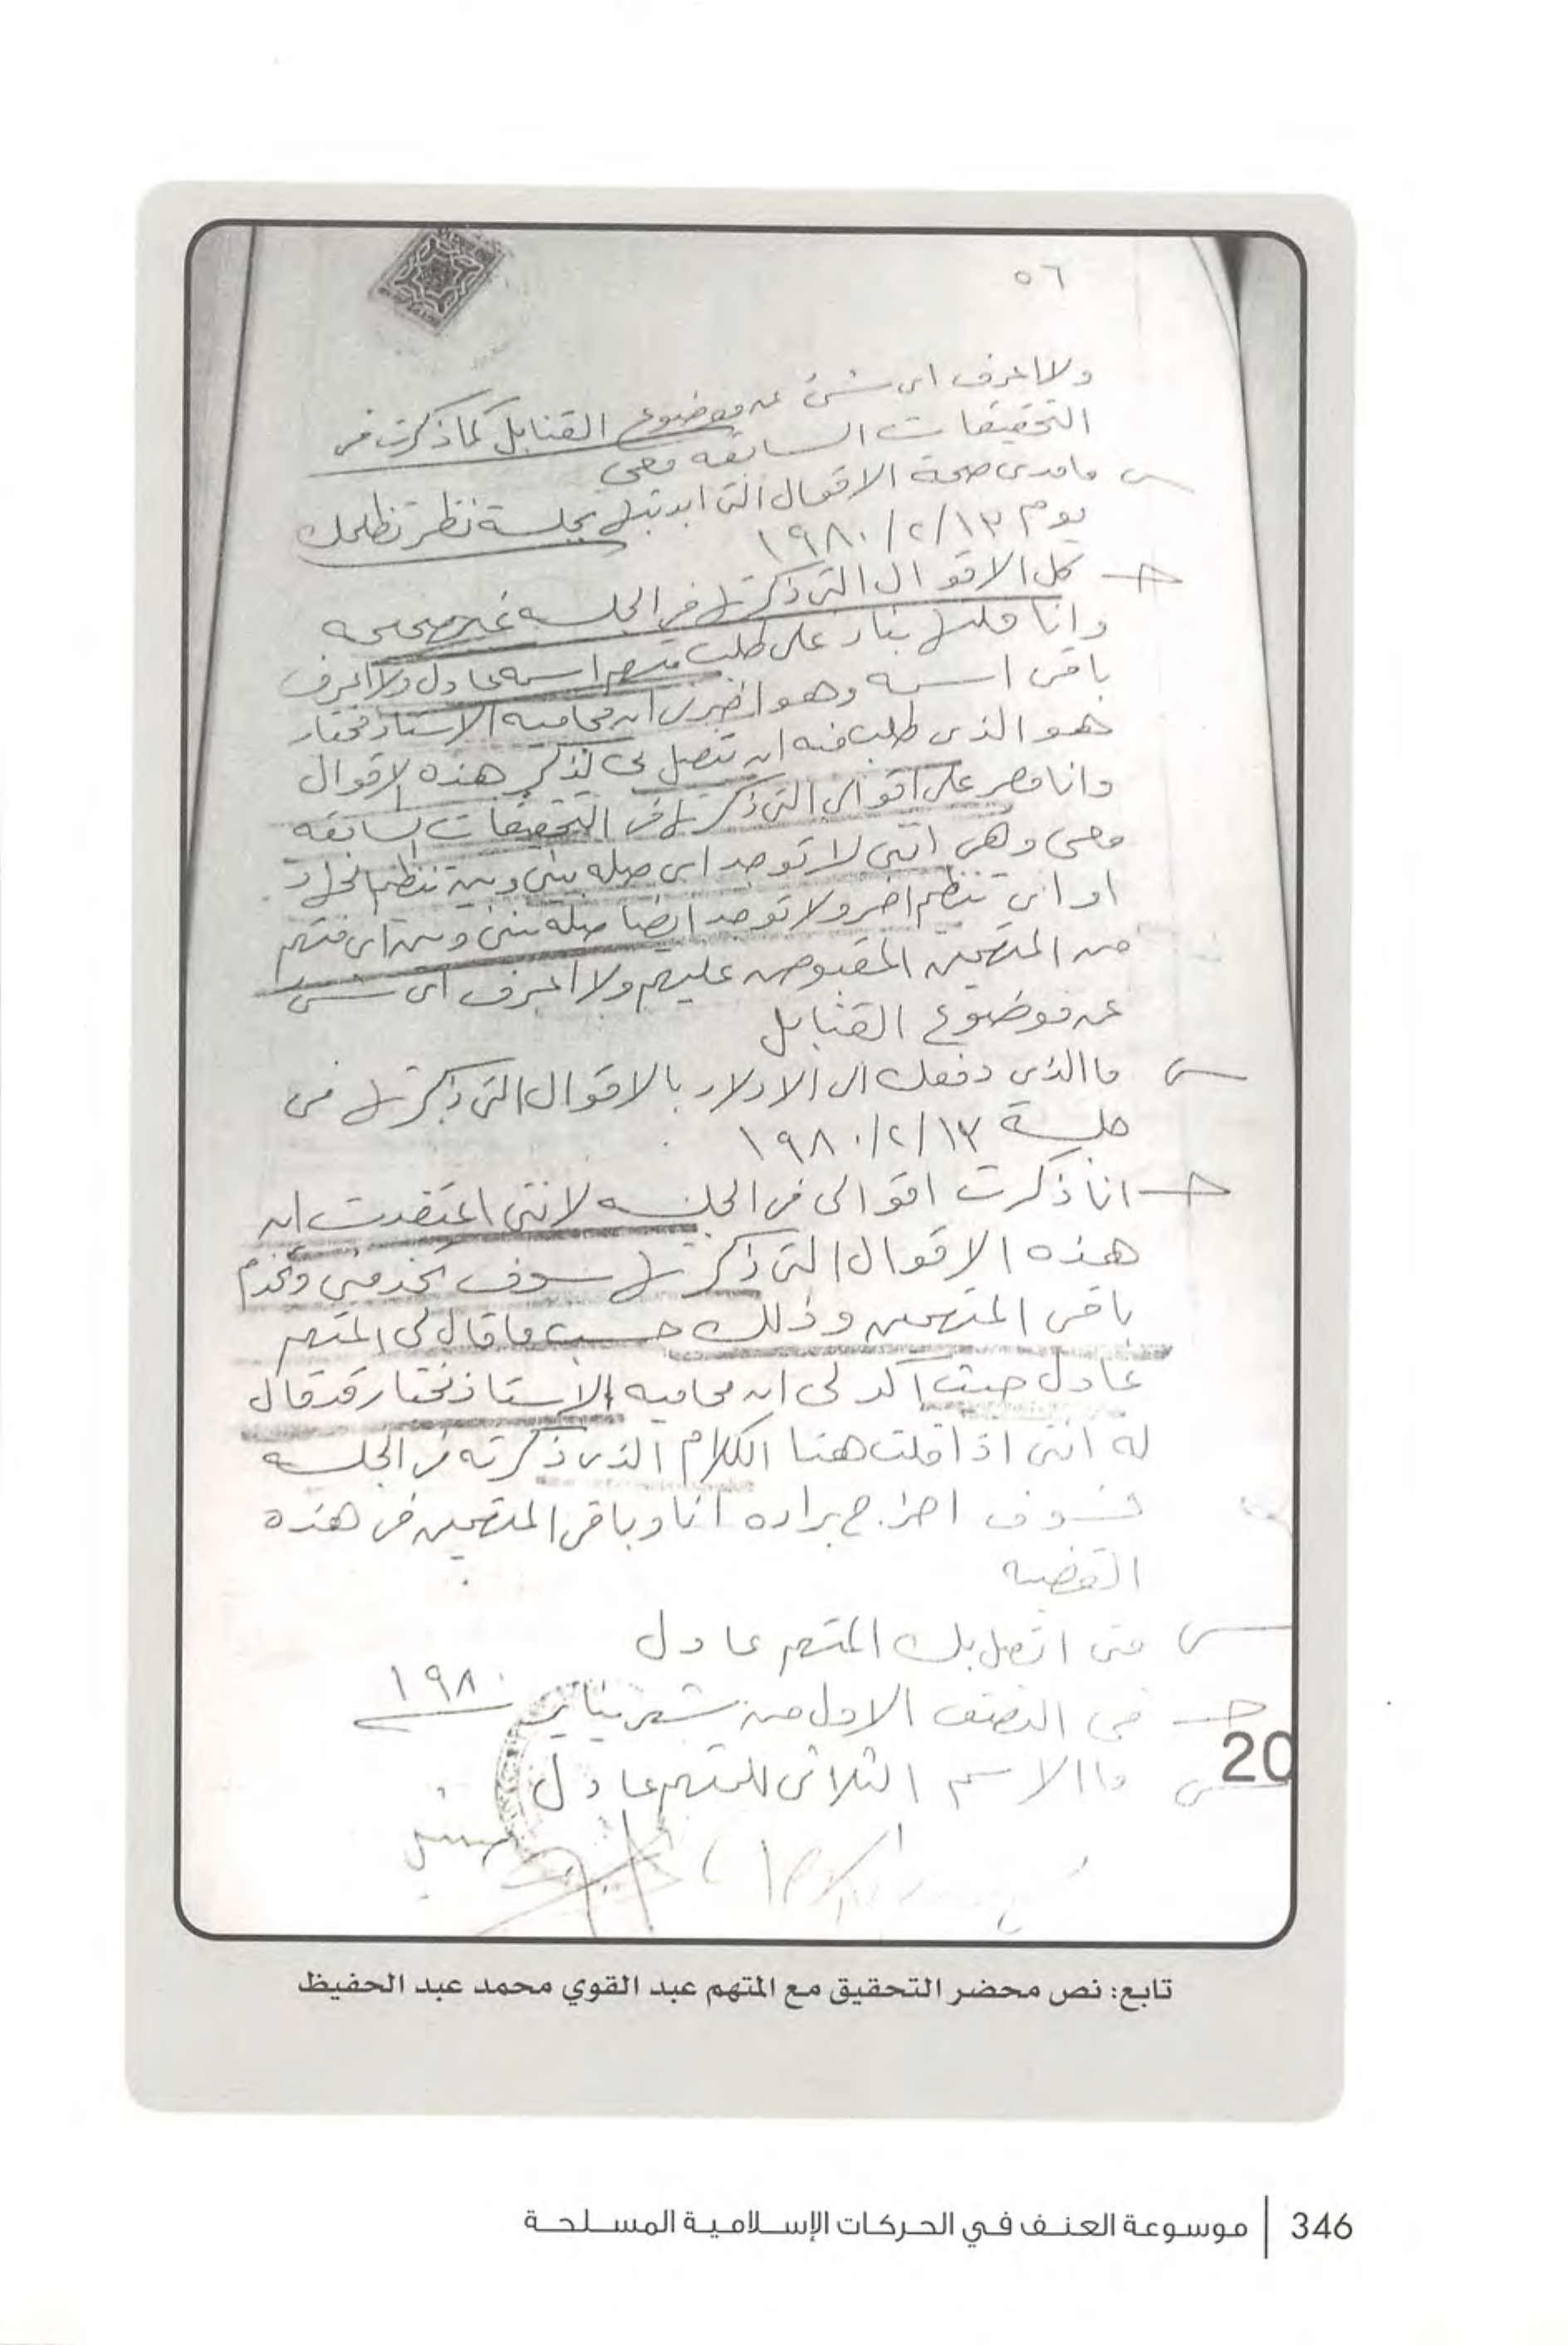 ٥٦
ولا اعرف اى شئ عن موضوع القنابل كما ذكرت فى
التحقيقات السابقه معى
س ما مدى صحة الاقوال التى ابديتها بجلسة نظر تظلمك
يوم ١٣/٢/١٩٨٠
ج كل الاقوال التى ذكرتها فى الجلسه غير صحيحه
وانا قلتها بناء على طلب متهم اسمه عادل ولا اعرف
باقى اسمه وهو اخبرنى ان محاميه الاستاذ مختار
هو الذى طلب منه ان يتصل بى لذكر هذه الاقوال
وانا مصر على اقوالى التى ذكرتها فى التحقيقات السابقه
معى وهى اننى لا توجد اى صله بينى وبين تنظيم الجهاد
او اى تنظيم اخر ولا توجد ايضا صله بينى وبين اى متهم
من المتهمين المقبوض عليهم ولا اعرف اى شئ
عن موضوع القنابل
س ما الذى دفعك الى الادلاء بالاقوال التى ذكرتها فى
جلسة ١٣/٢/١٩٨٠
ج انا ذكرت اقوالى فى الجلسه لاننى اعتقدت ان
هذه الاقوال التى ذكرتها سوف تخدمنى وتخدم
باقى المتهمين وذلك حسب ما قال لى المتهم
عادل حيث اكد لى ان محاميه الاستاذ مختار قد قال
له اننى اذا قلت هذا الكلام الذى ذكرته فى الجلسه
فسوف اخرج براءه انا وباقى المتهمين فى هذه
القضيه
س متى اتصل بك المتهم عادل
ج فى النصف الاول من شهر يناير ١٩٨٠
س ما الاسم الثلاثى للمتهم عادل
20
تابع: نص محضر التحقيق مع المتهم عبد القوي محمد عبد الحفيظ
346 | موسوعة العنف في الحركات الإسلامية المسلحة